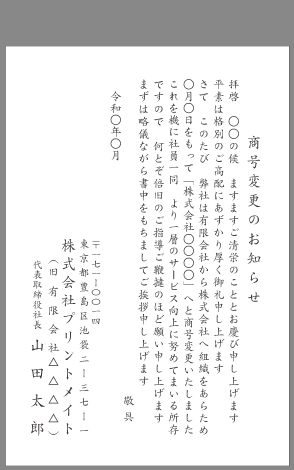 商号変更のお知らせ
拝啓　〇〇の候　ますますご清栄のこととお慶び申し上げます
平素は格別のご高配にあずかり厚く御礼申し上げます
さて　このたび　弊社は有限会社から株式会社へ組織をあらため
〇月〇日をもって「株式会社〇〇〇〇」へと商号変更いたしました
これを機に社員一同　より一層のサービス向上に努めてまいる所存
ですので　何とぞ倍旧のご指導ご鞭撻のほど願い申し上げます
まずは略儀ながら書中をもちましてご挨拶申し上げます
敬具
令和〇年〇月
〒一七一-〇〇一四
東京都豊島区池袋二-三七-一
株式会社プリントメイト
（旧有限会社△△△△）
代表取締役社長　山田太郎